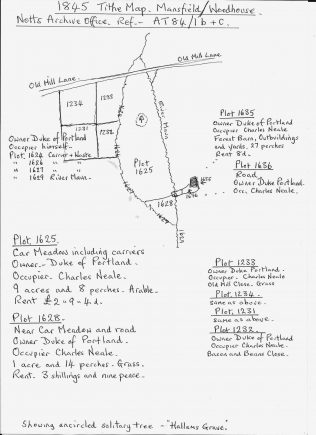 1845 Tithe Map. Mansfield/Woodhouse.
Notts Archive Office. Ref.- AT84/1b+c.
Old Hill Lane.
Old Hill Lane
1234
1233
1231
1232
River Maun
Plot
1625
1628
1635
1636
Owner Duke of Portland
Occupier himself.
Plot. 1624 Carrier + Waste
" 1626 " "
" 1627 " "
" 1629 River Maun.
Plot 1635
Owner Duke of Portland
Occupier Charles Neale.
Forest Barn, Outbuildings
and yards. 27 perches
Rent 8d.
Plot 1636
Road
Owner Duke Portland.
Occ. Charles Neale
Plot 1625
Car Meadow including carriers
Owner - Duke of Portland.
Occupier. Charles Neale.
9 acres and 8 perches. Arable.
Rent £2-9-4d.
Plot 1628
Near Car Meadow and road
Owner Duke of Portland.
Occupier Charles Neale.
1 acre and 14 perches. Grass.
Rent. 3 shillings and nine pence.
Plot 1233
Owner Duke Portland
Occupier. Charles Neale
Old Hill Close. Grass
Plot. 1234.
same as above.
Plot. 1231
same as above.
Plot 1232.
Owner Duke of Portland
Occupier Charles Neale
Bacon and Beans Close.
Showing encircled solitary tree - 'Hallams Grave'.